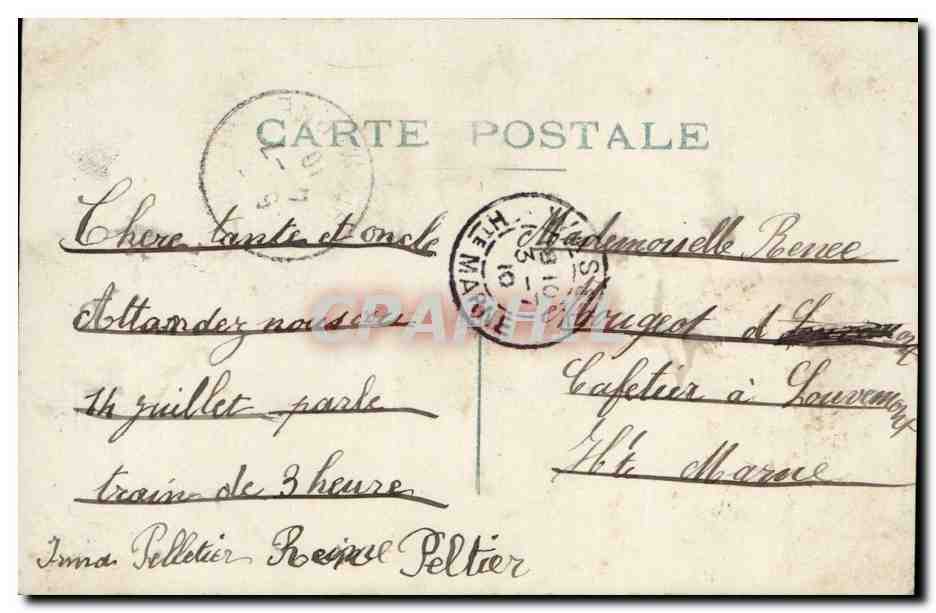 CARTE POSTALE
Chere tante et oncle
Attandez nous au
14 juillet parle
train de 3 heure
Irma Pelletier Reine Peltier
Mademoiselle Renee
Mugeot d
Cafetier à Louvemont
Hte Marne
HTE MARNE
8 10
3 - 7
10
CPARAMA